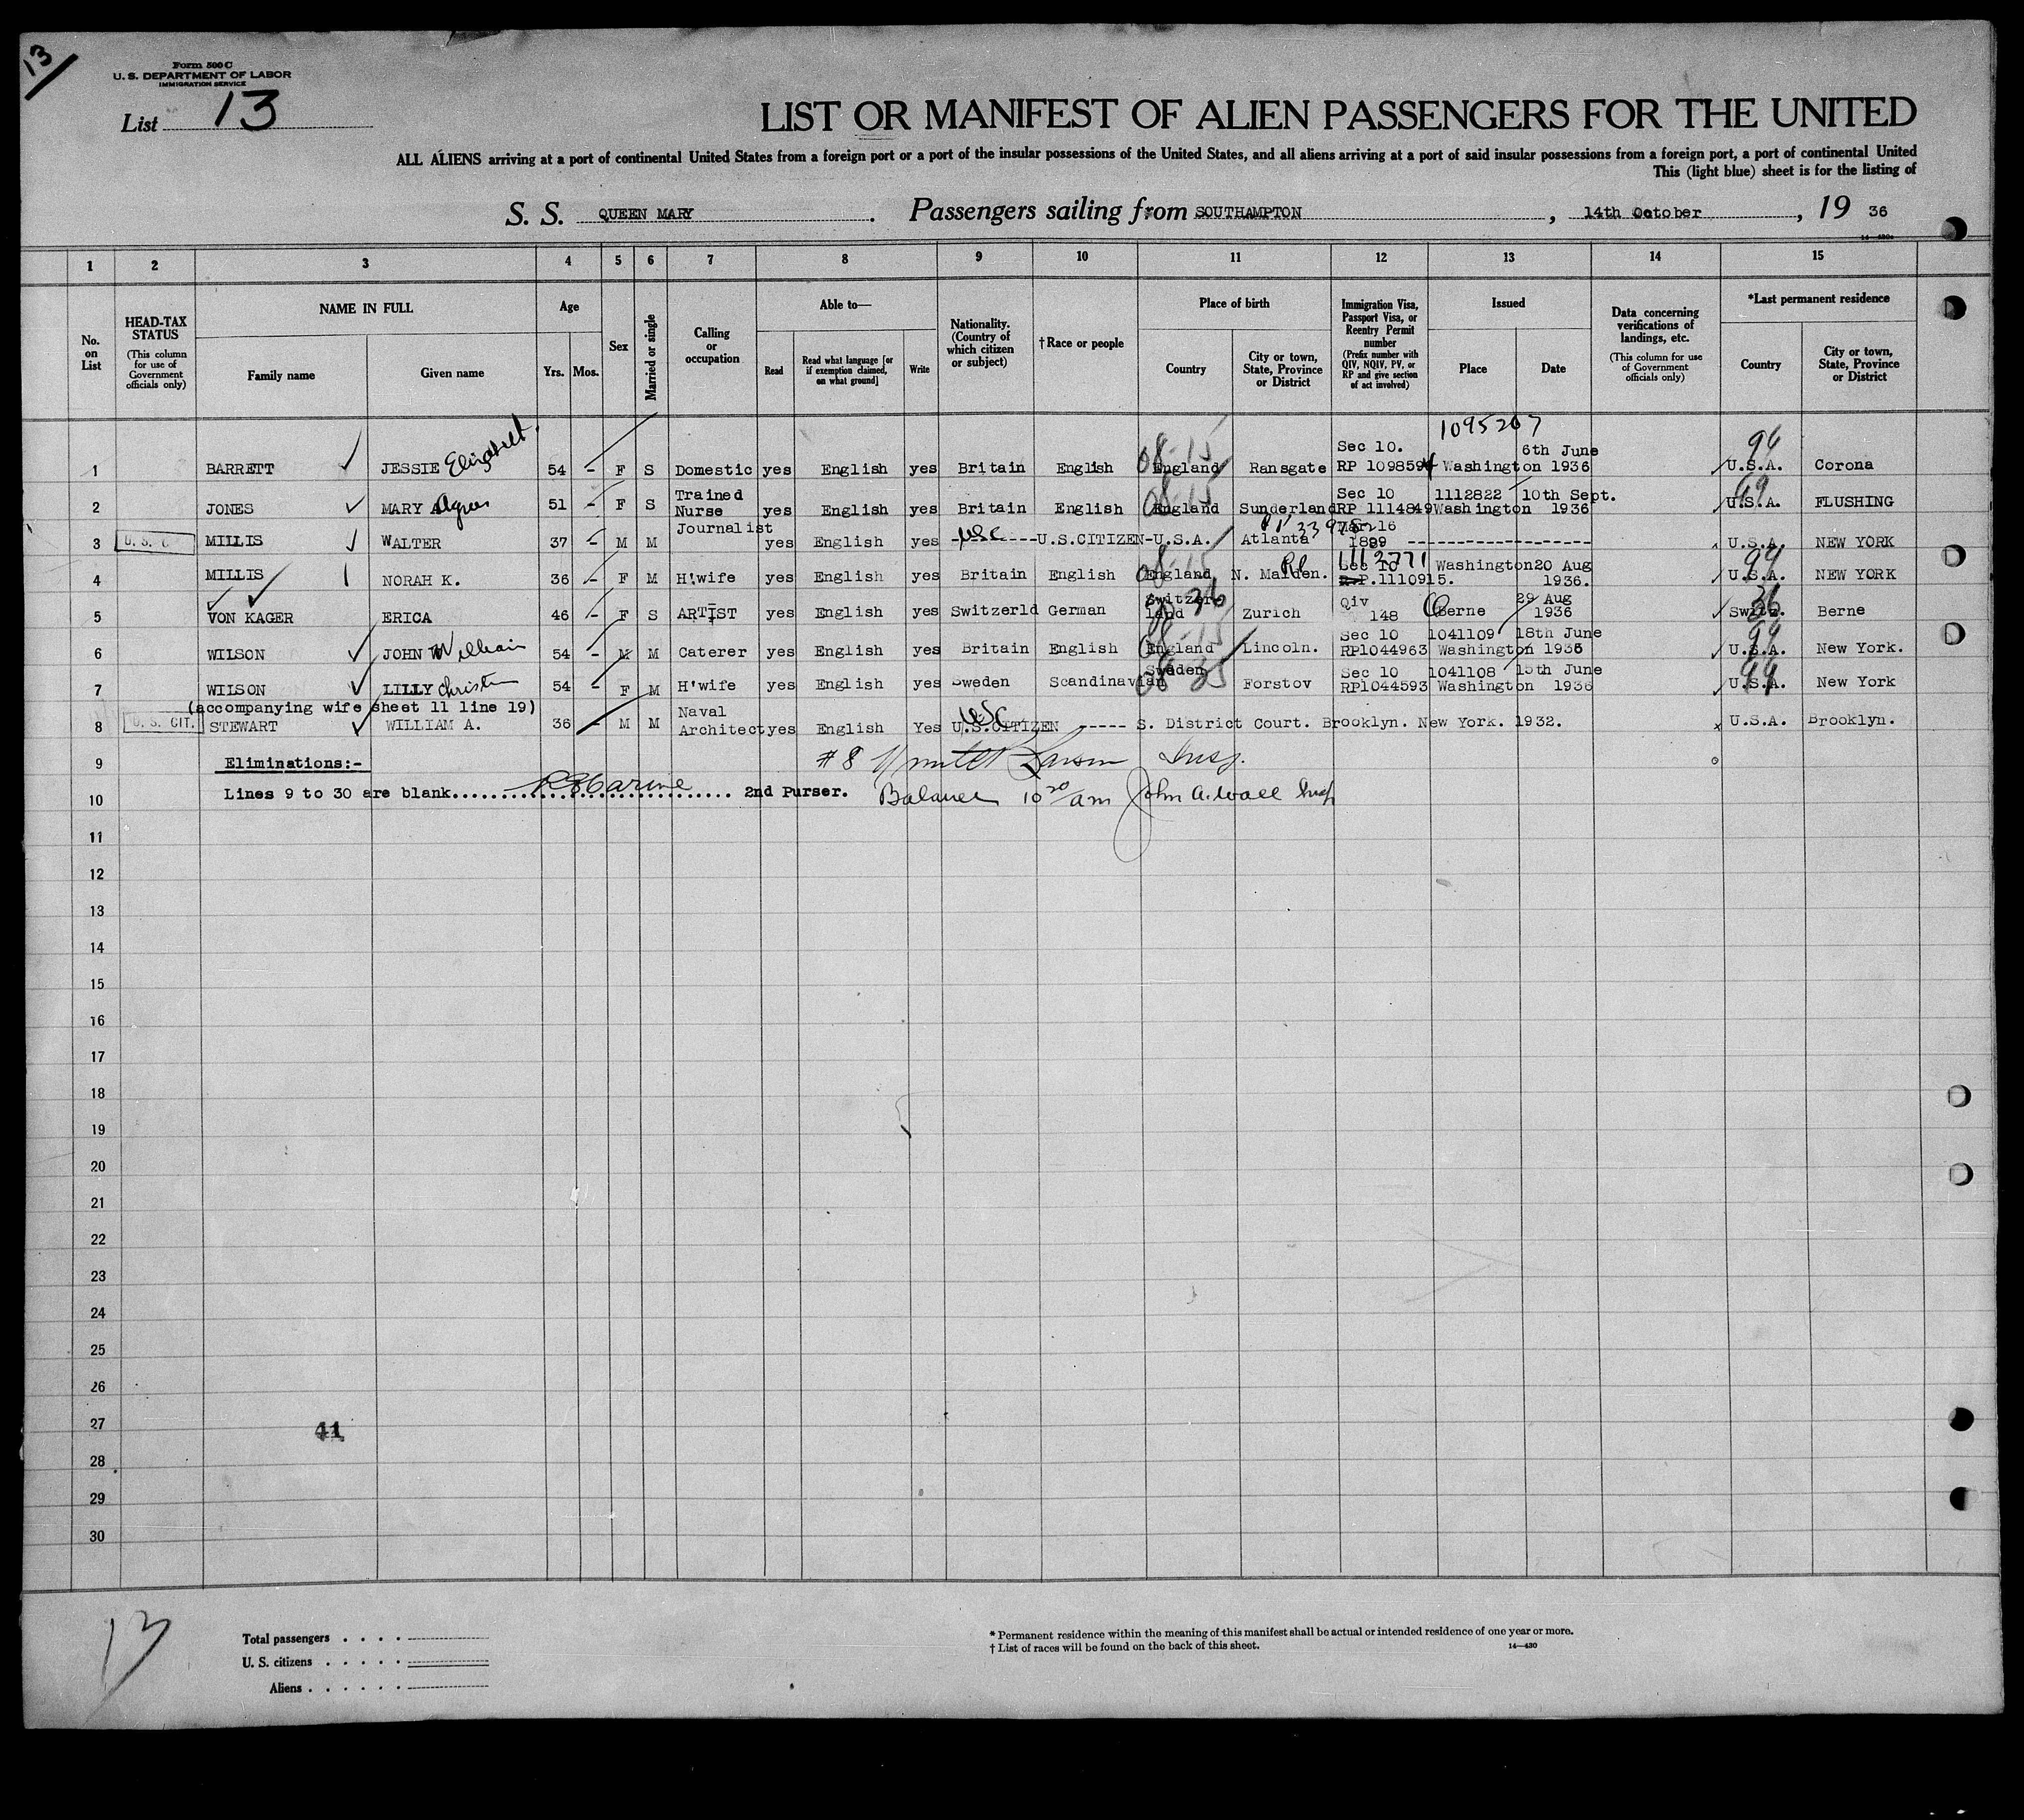 13
Form 500 C
U. S. DEPARTMENT OF LABOR
IMMIGRATION SERVICE
List 13
LIST OR MANIFEST OF ALIEN PASSENGERS FOR THE UNITED
ALL ALIENS arriving at a port of continental United States from a foreign port or a port of the insular possessions of the United States, and all aliens arriving at a port of said insular possessions from a foreign port, a port of continental United
This (light blue) sheet is for the listing of
S. S. QUEEN MARY. Passengers sailing from SOUTHAMPTON, 14th October, 19 36
14—430a
1 2 3 4 5 6 7 8 9 10 11 12 13 14 15
No. on List
HEAD-TAX STATUS
(This column for use of Government officials only)
NAME IN FULL
Family name Given name
Age
Yrs. Mos.
Sex
Married or single
Calling or occupation
Able to—
Read
Read what language [or if exemption claimed, on what ground]
Write
Nationality. (Country of which citizen or subject)
†Race or people
Place of birth
Country
City or town, State, Province or District
Immigration Visa, Passport Visa, or Reentry Permit number
(Prefix number with QIV, NQIV, PV, or RP and give section of act involved)
Issued
Place Date
Data concerning verifications of landings, etc.
(This column for use of Government officials only)
*Last permanent residence
Country
City or town, State, Province or District
1 BARRETT JESSIE Elizabeth. 54 - F S Domestic yes English yes Britain English 08-15 England Ransgate Sec 10. RP 109859 1095207 Washington 6th June 1936 94 U.S.A. Corona
2 JONES MARY Agnes 51 - F S Trained Nurse yes English yes Britain English 08-15 England Sunderland Sec 10 RP 1114849 1112822 Washington 10th Sept. 1936 U.S.A. FLUSHING
3 U. S. C MILLIS WALTER 37 - M M Journalist yes English yes USC ----------U.S.CITIZEN-U.S.A. Atlanta 16 1899 -------------------- U.S.A. NEW YORK
4 MILLIS NORAH K. 36 - F M H'wife yes English yes Britain English England N. Malden. Sec 10 1112771 R.P.1110915. Washington 20 Aug 1936. 94 U.S.A. NEW YORK
5 VON KAGER ERICA 46 - F S ARTIST yes English yes Switzerld German Switzerland 36 Zurich Qiv 148 Berne 29 Aug 1936 36 Switz. Berne
6 WILSON JOHN William 54 - M M Caterer yes English yes Britain English 08-15 England Lincoln. Sec 10 RP1044963 1041109 Washington 18th June 1936 94 U.S.A. New York.
7 WILSON LILLY Christin 54 - F M H'wife yes English yes Sweden Scandinavian Sweden 35 Forstov Sec 10 RP1044593 1041108 Washington 15th June 1936 94 U.S.A. New York
(accompanying wife sheet 11 line 19)
8 U. S. CIT. STEWART WILLIAM A. 36 - M M Naval Architect yes English Yes USC U.S.CITIZEN ----- S. District Court. Brooklyn. New York. 1932. x U.S.A. Brooklyn.
9 Eliminations:- # 8 Larson Insp.
10 Lines 9 to 30 are blank.......................... 2nd Purser. Balance 10 20/am John A. Wall Insp
11
12
13
14
15
16
17
18
19
20
21
22
23
24
25
26
27 41
28
29
30
13
Total passengers . . . .
U. S. citizens . . . . .
Aliens . . . . . .
* Permanent residence within the meaning of this manifest shall be actual or intended residence of one year or more.
† List of races will be found on the back of this sheet. 14—430